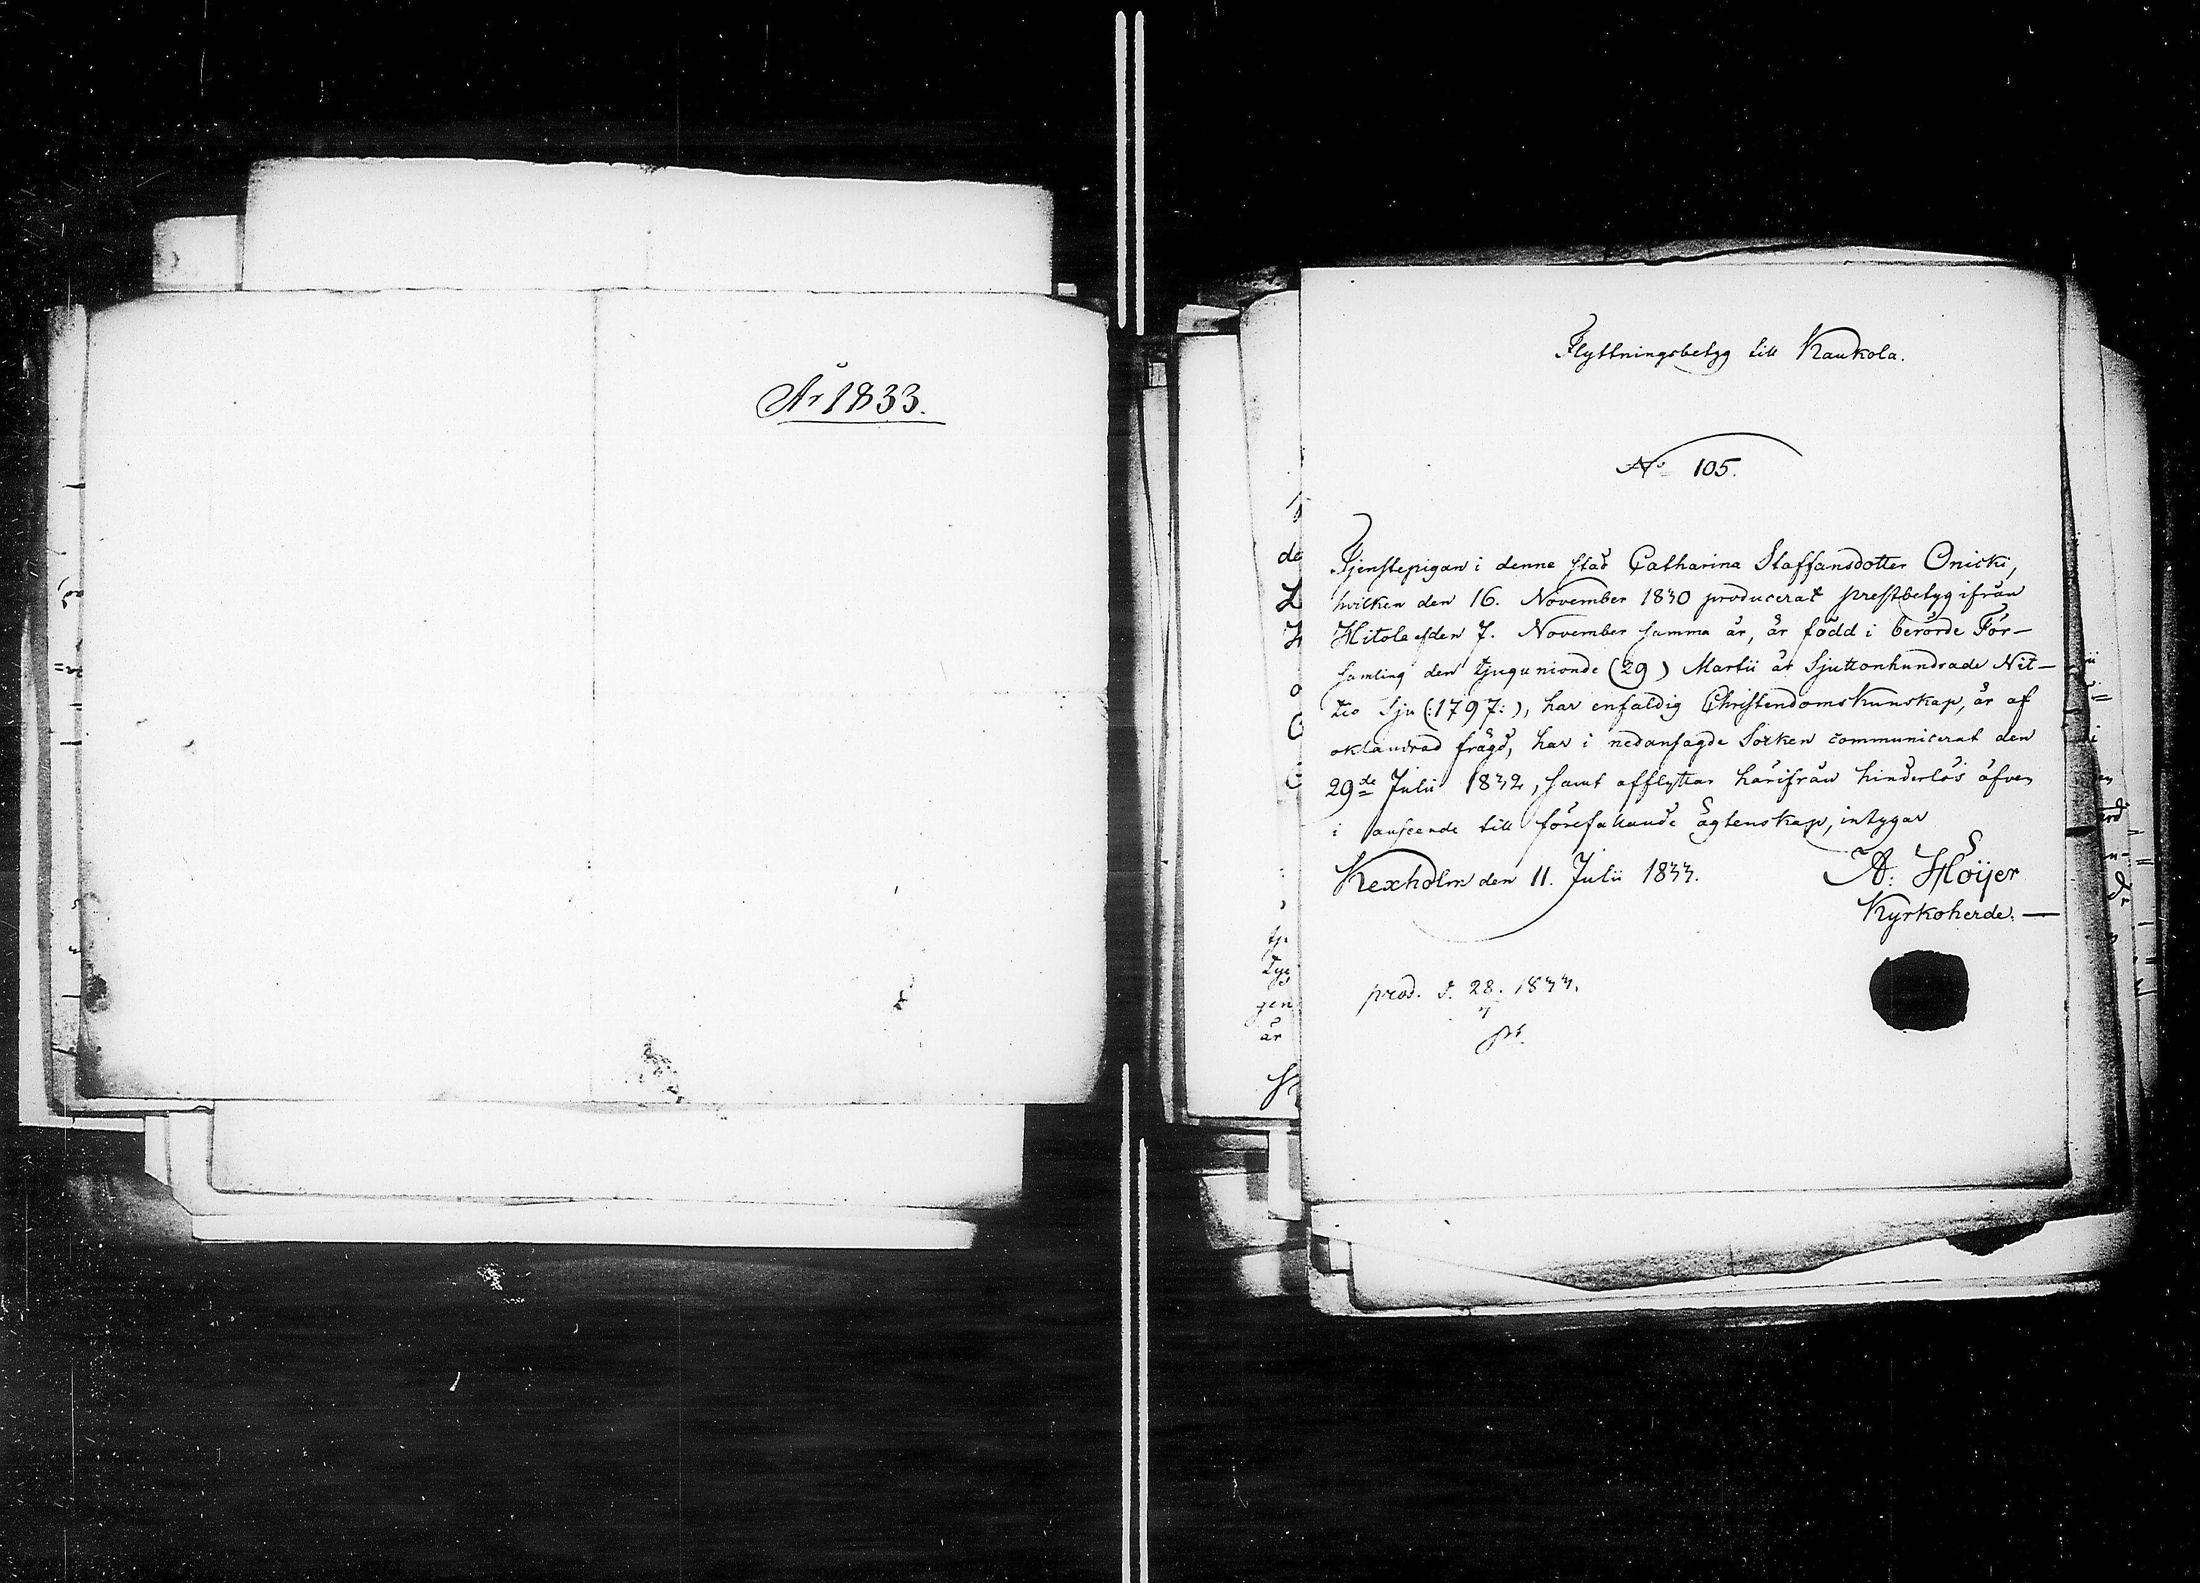 År 1833.
Flyttningsbetyg till Kaukola.
No 105.
Tjenstepigan i denne stad Catharina Staffansdotter Onicki,
hvilken den 16. November 1830 producerat prestbetyg ifrån
Hitola af den 7. November samma år, är född i berörde För-
samling den tjugunionde (29) Martii år Sjuttonhundrade Nit-
tio Sju (:1797:), har enfaldig Christendomskunskap, är af
oklandrad frägd, har i nedansagde Socken communicerat den
29de Julii 1832, samt afflyttar härifrån hinderlös äfven
i anseende till förefallande ägtenskap, intygar
Kexholm den 11. Julii 1833.
A: Höijer
Kyrkoherde.
prod. d. 28. 1833.
7